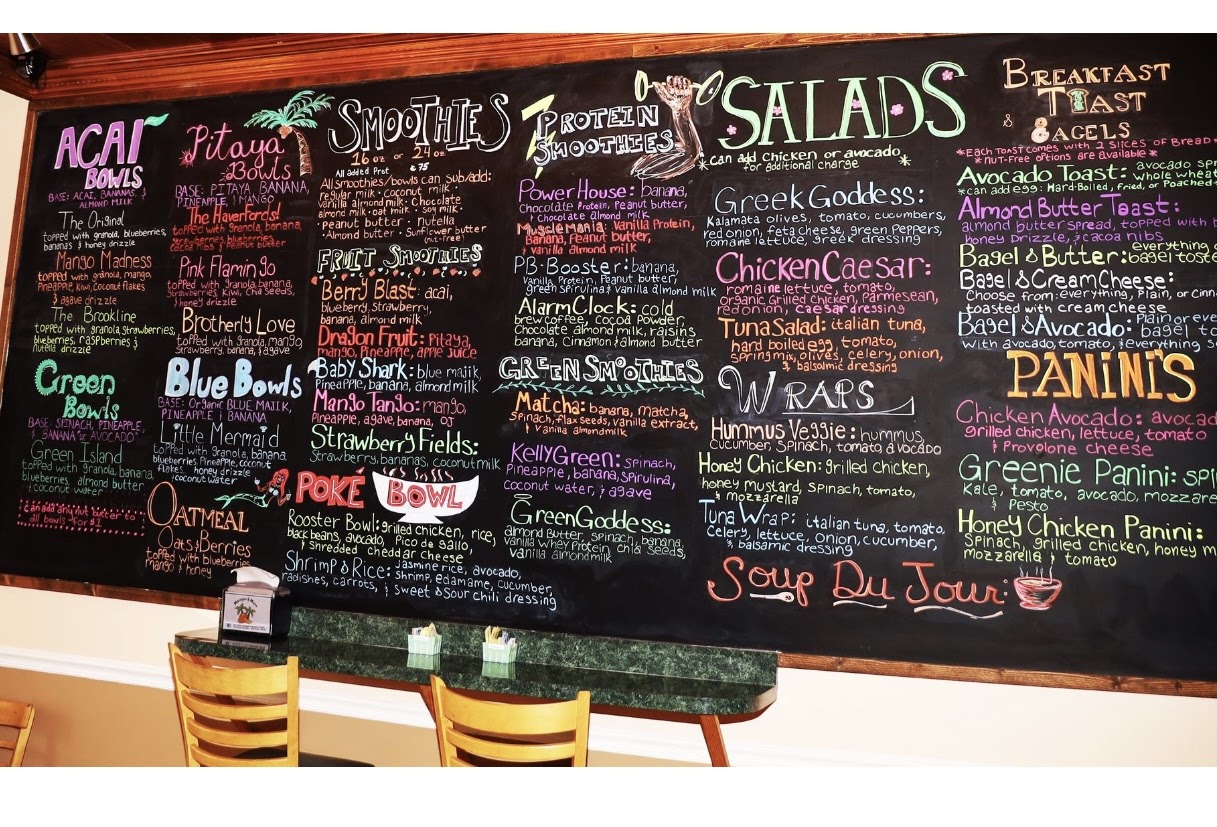 ACAI
BOWLS
BASE: ACAI, BANANAS, &
ALMOND MILK
The Original
topped with granola, blueberries,
bananas & honey drizzle
Mango Madness
topped with granola, mango,
Pineapple, Kiwi, Coconut flakes
& agave drizzle
The Brookline
topped with granola, strawberries,
blueberries, raspberries &
nutella drizzle
Green
Bowls
BASE: SPINACH, PINEAPPLE,
& BANANA or AVOCADO
Green Island
topped with granola, banana,
blueberries, almond butter
& coconut water
all bowls for $1
Pitaya
Bowls
BASE: PITAYA, BANANA,
PINEAPPLE, & MANGO
The Haverfords!
topped with granola, banana,
Pink Flamingo
topped with granola, banana,
Strawberries, Kiwi, Chia Seeds,
& honey drizzle
Brotherly Love
topped with granola, mango,
strawberry, banana, & agave
Blue Bowls
BASE: Organic BLUE MAJIK,
PINEAPPLE & BANANA
Little Mermaid
topped with granola, banana,
blueberries, Pineapple, coconut
flakes, honey drizzle
& coconut water
OATMEAL
Oats & Berries
topped with blueberries,
mango & honey
SMOOTHIES
16 oz or 24 oz
All added Prot .75
All smoothies/bowls can sub/add:
regular milk • Coconut milk •
vanilla almond milk • Chocolate
almond milk • oat milk • soy milk •
• peanut butter • Nutella
• Almond butter • Sunflower butter
(nut-free)
FRUIT SMOOTHIES
Berry Blast: acai,
blueberry, strawberry,
banana, almond milk
Dragon Fruit: Pitaya,
mango, Pineapple, apple juice
Baby Shark: blue majik,
Pineapple, banana, almond milk
Mango Tango: mango,
Pineapple, agave, banana, OJ
Strawberry Fields:
Strawberry, bananas, coconut milk
POKÉ BOWL
Rooster Bowl: grilled chicken, rice,
black beans, avocado, Pico de gallo,
& Shredded cheddar cheese
Shrimp & Rice: Jasmine rice, avocado,
Shrimp, edamame, cucumber,
radishes, carrots, & sweet & Sour chili dressing
PROTEIN
SMOOTHIES
Power House: banana,
Chocolate Protein, Peanut butter,
& Chocolate almond milk
Muscle Mania: Vanilla Protein,
Banana, Peanut butter,
& vanilla almond milk
PB-Booster: banana,
Vanilla Protein, Peanut butter,
green spirulina & vanilla almond milk
Alarm Clock: cold
brew coffee, cocoa powder,
Chocolate almond milk, raisins
banana, Cinnamon & almond butter
GREEN SMOOTHIES
Matcha: banana, matcha,
Spinach, flax seeds, vanilla extract,
& vanilla almondmilk
Kelly Green: spinach,
Pineapple, banana, spirulina,
coconut water, & agave
Green Goddess:
almond butter, spinach, banana,
vanilla Whey Protein, chia seeds,
vanilla almondmilk
SALADS
*can add chicken or avocado*
for additional charge
Greek Goddess:
Kalamata olives, tomato, cucumbers,
red onion, feta cheese, green Peppers,
romaine lettuce, greek dressing
Chicken Caesar:
romaine lettuce, tomato,
organic Grilled chicken, parmesean,
red onion, caesar dressing
Tuna Salad: italian tuna,
hard boiled egg, tomato,
spring mix, olives, celery, onion,
& balsolmic dressing
WRAPS
Hummus Veggie: hummus,
cucumber, Spinach, tomato, avocado
Honey Chicken: grilled chicken,
honey mustard, spinach, tomato,
& mozzarella
Tuna Wrap: italian tuna, tomato,
Celery, lettuce, onion, cucumber,
& balsamic dressing
Soup Du Jour:
BREAKFAST
TOAST
& BAGELS
*Each Toast comes with 2 Slices of Bread*
*NUT-Free options are available*
Avocado Toast: avocado spr
whole wheat
*can add egg: Hard-Boiled, fried, or Poached
Almond Butter Toast:
almond butter spread, topped with b
honey Drizzle, & cacoa nibs
Bagel & Butter: everything o
bagel toste
Bagel & Cream Cheese:
Choose from: everything, Plain, or Cinn
toasted with cream cheese
Bagel & Avocado: Plain or eve
bagel to
with avocado, tomato, & everything s
PANINI'S
Chicken Avocado: avocad
grilled chicken, lettuce, tomato
& Provolone cheese
Greenie Panini: SPI
Kale, tomato, avocado, mozzare
& Pesto
Honey Chicken Panini:
Spinach, grilled chicken, honey m
mozzarella & tomato